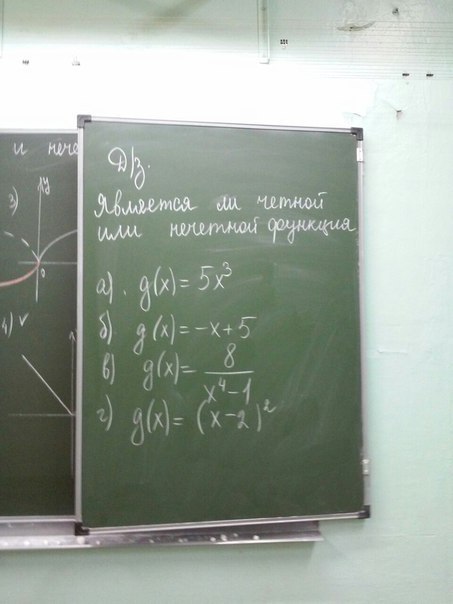 и нече
3)
y
0
4)
Д/з.
Является ли четной
или нечетной функция
а). g(x) = 5x³
б) g(x) = -x+5
в) g(x) = 8/(x⁴-1)
г) g(x) = (x-2)²